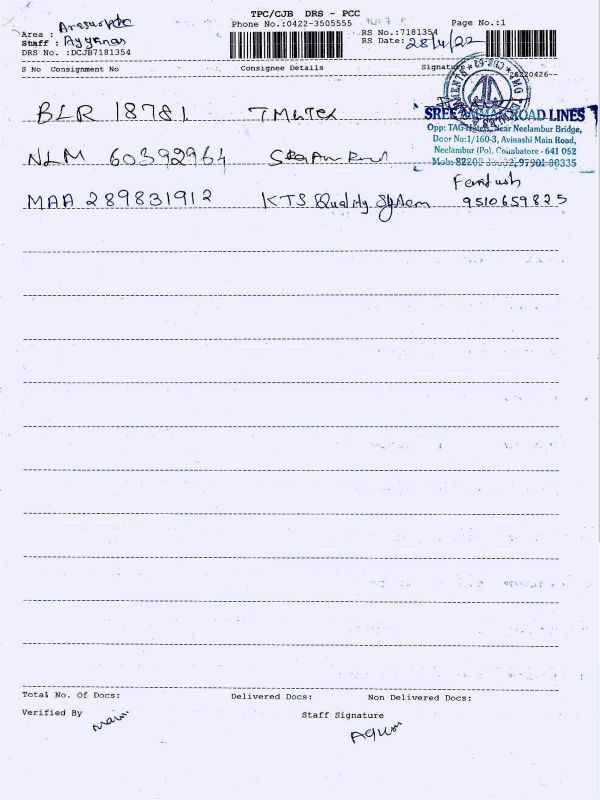 TPC/CJB DRS - PCC
Phone No.:0422-3505555
Page No.:1
Area :
Staff : Ayyanar
DRS No. :DCJB7181354
RS No.:7181354
RS Date: 28/4/22
S No Consignment No
Consignee Details
Signature
20220426--
BLR 18781
SREE ROAD LINES
Opp: TAG Near Neelambur Bridge,
Door No:1/160-3, Avinashi Main Road,
Neelambur (Po), Coimbatore - 641 062
Mob:
NLM 60392964
MAA 289831912 KTS Quality System 9510659825
Total No. Of Docs:
Delivered Docs:
Non Delivered Docs:
Verified By
Staff Signature